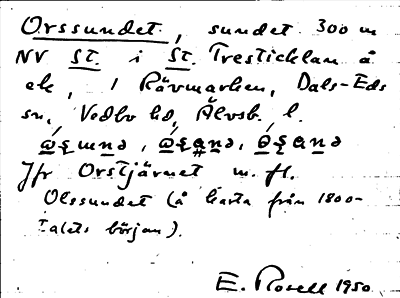 Orssundet, sundet 300 m
NV St. i St. Tresticklan å
ek, i Rävmarken, Dals-Eds
sn, Vedbo hd, Älvsb. l.
Jfr Orstjärnet m. fl.
Olssundet (å karta från 1800-
talets början).
E. Rosell 1950